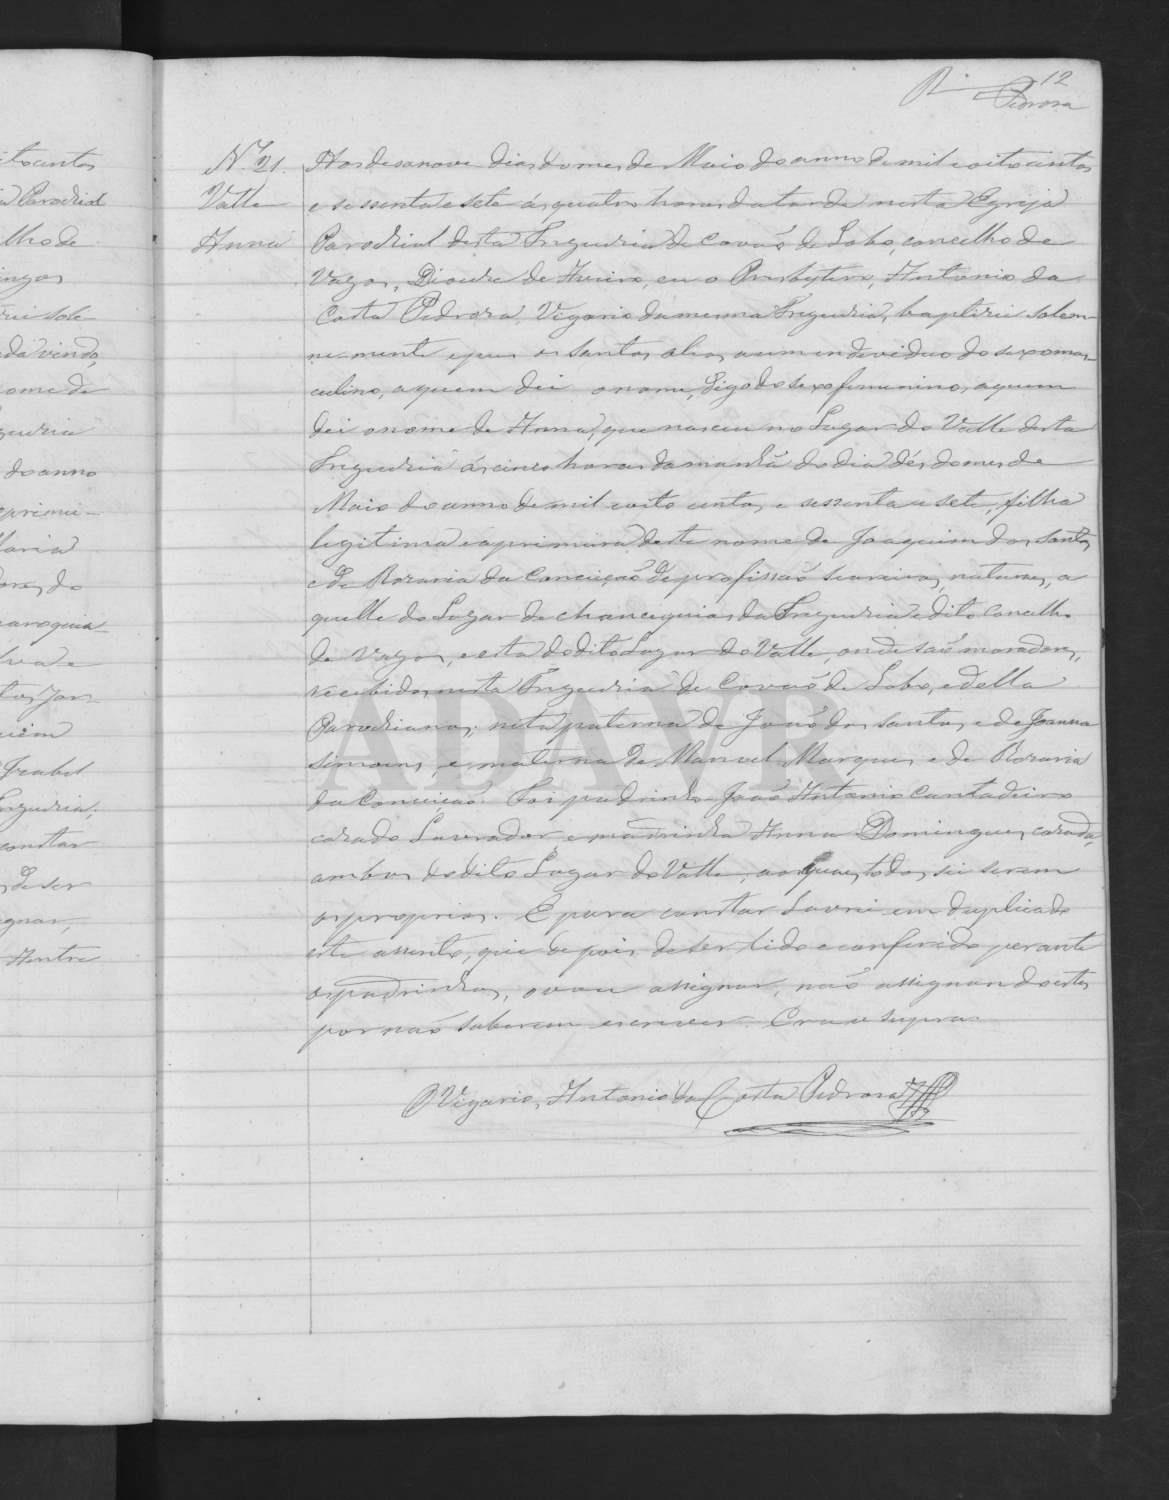 12
Pedrosa
N.º 21.
Valle
Anna
Aos desanove dias do mes de Maio do anno de mil e oito centos
e sessenta e sete ás quatro horas da tarde nesta Egreja
Parochial desta Freguezia de Covaõ de Lobo, concelho de
Vagos, Diocese de Aveiro, eu o Presbytero, Antonio da
Costa Pedrosa, Vigario da mesma Freguezia, baptizei solem-
nemente e pus os santos oleos a um individuo do sexo mas-
culino, a quem dei o nome, digo do sexo femenino, a quem
dei o nome de Anna, que nasceu no Lugar do Valle desta
Freguezia ás cinco horas da manhã do dia dés do mes de
Maio do anno de mil e oito centos e sessenta e sete, filha
legitima e a primeira deste nome de Joaquim dos Santos
e de Rozaria da Conceiçaõ de profissaõ seareiros, naturaes, a
quelle do Lugar de Chancequias da Freguezia e dito Concelho
de Vagos, e esta do dito Lugar do Valle, onde saõ moradores,
recebidos nesta Freguezia de Covaõ de Lobo, e della
Parochianos; neta paterna de Joaõ dos Santos e de Joanna
Simoens, e materna de Manuel Marques e de Rozaria
da Conceiçaõ. Foi padrinho Joaõ Antonio Cantadeiro
casado Lavrador, e madrinha Anna Domingues, casada,
ambos do dito Lugar do Valle, os quaes todos sei serem
os proprios. E para constar lavrei em duplicado
este assento, que depois de ser lido e conferido perante
os padrinhos, o vou assignar, naõ assignando estes
por naõ saberem escrever. Era ut supra.
O Vigario, Antonio da Costa Pedrosa
itocentos
a Parochial
lho de
ingos
zei sole
da vindo,
ome de
guezia
do anno
primei-
Maria
ores, do
Paroquia-
e
Izabel
Freguezia;
constar
de ser
gnar,
Antre
ADAVR